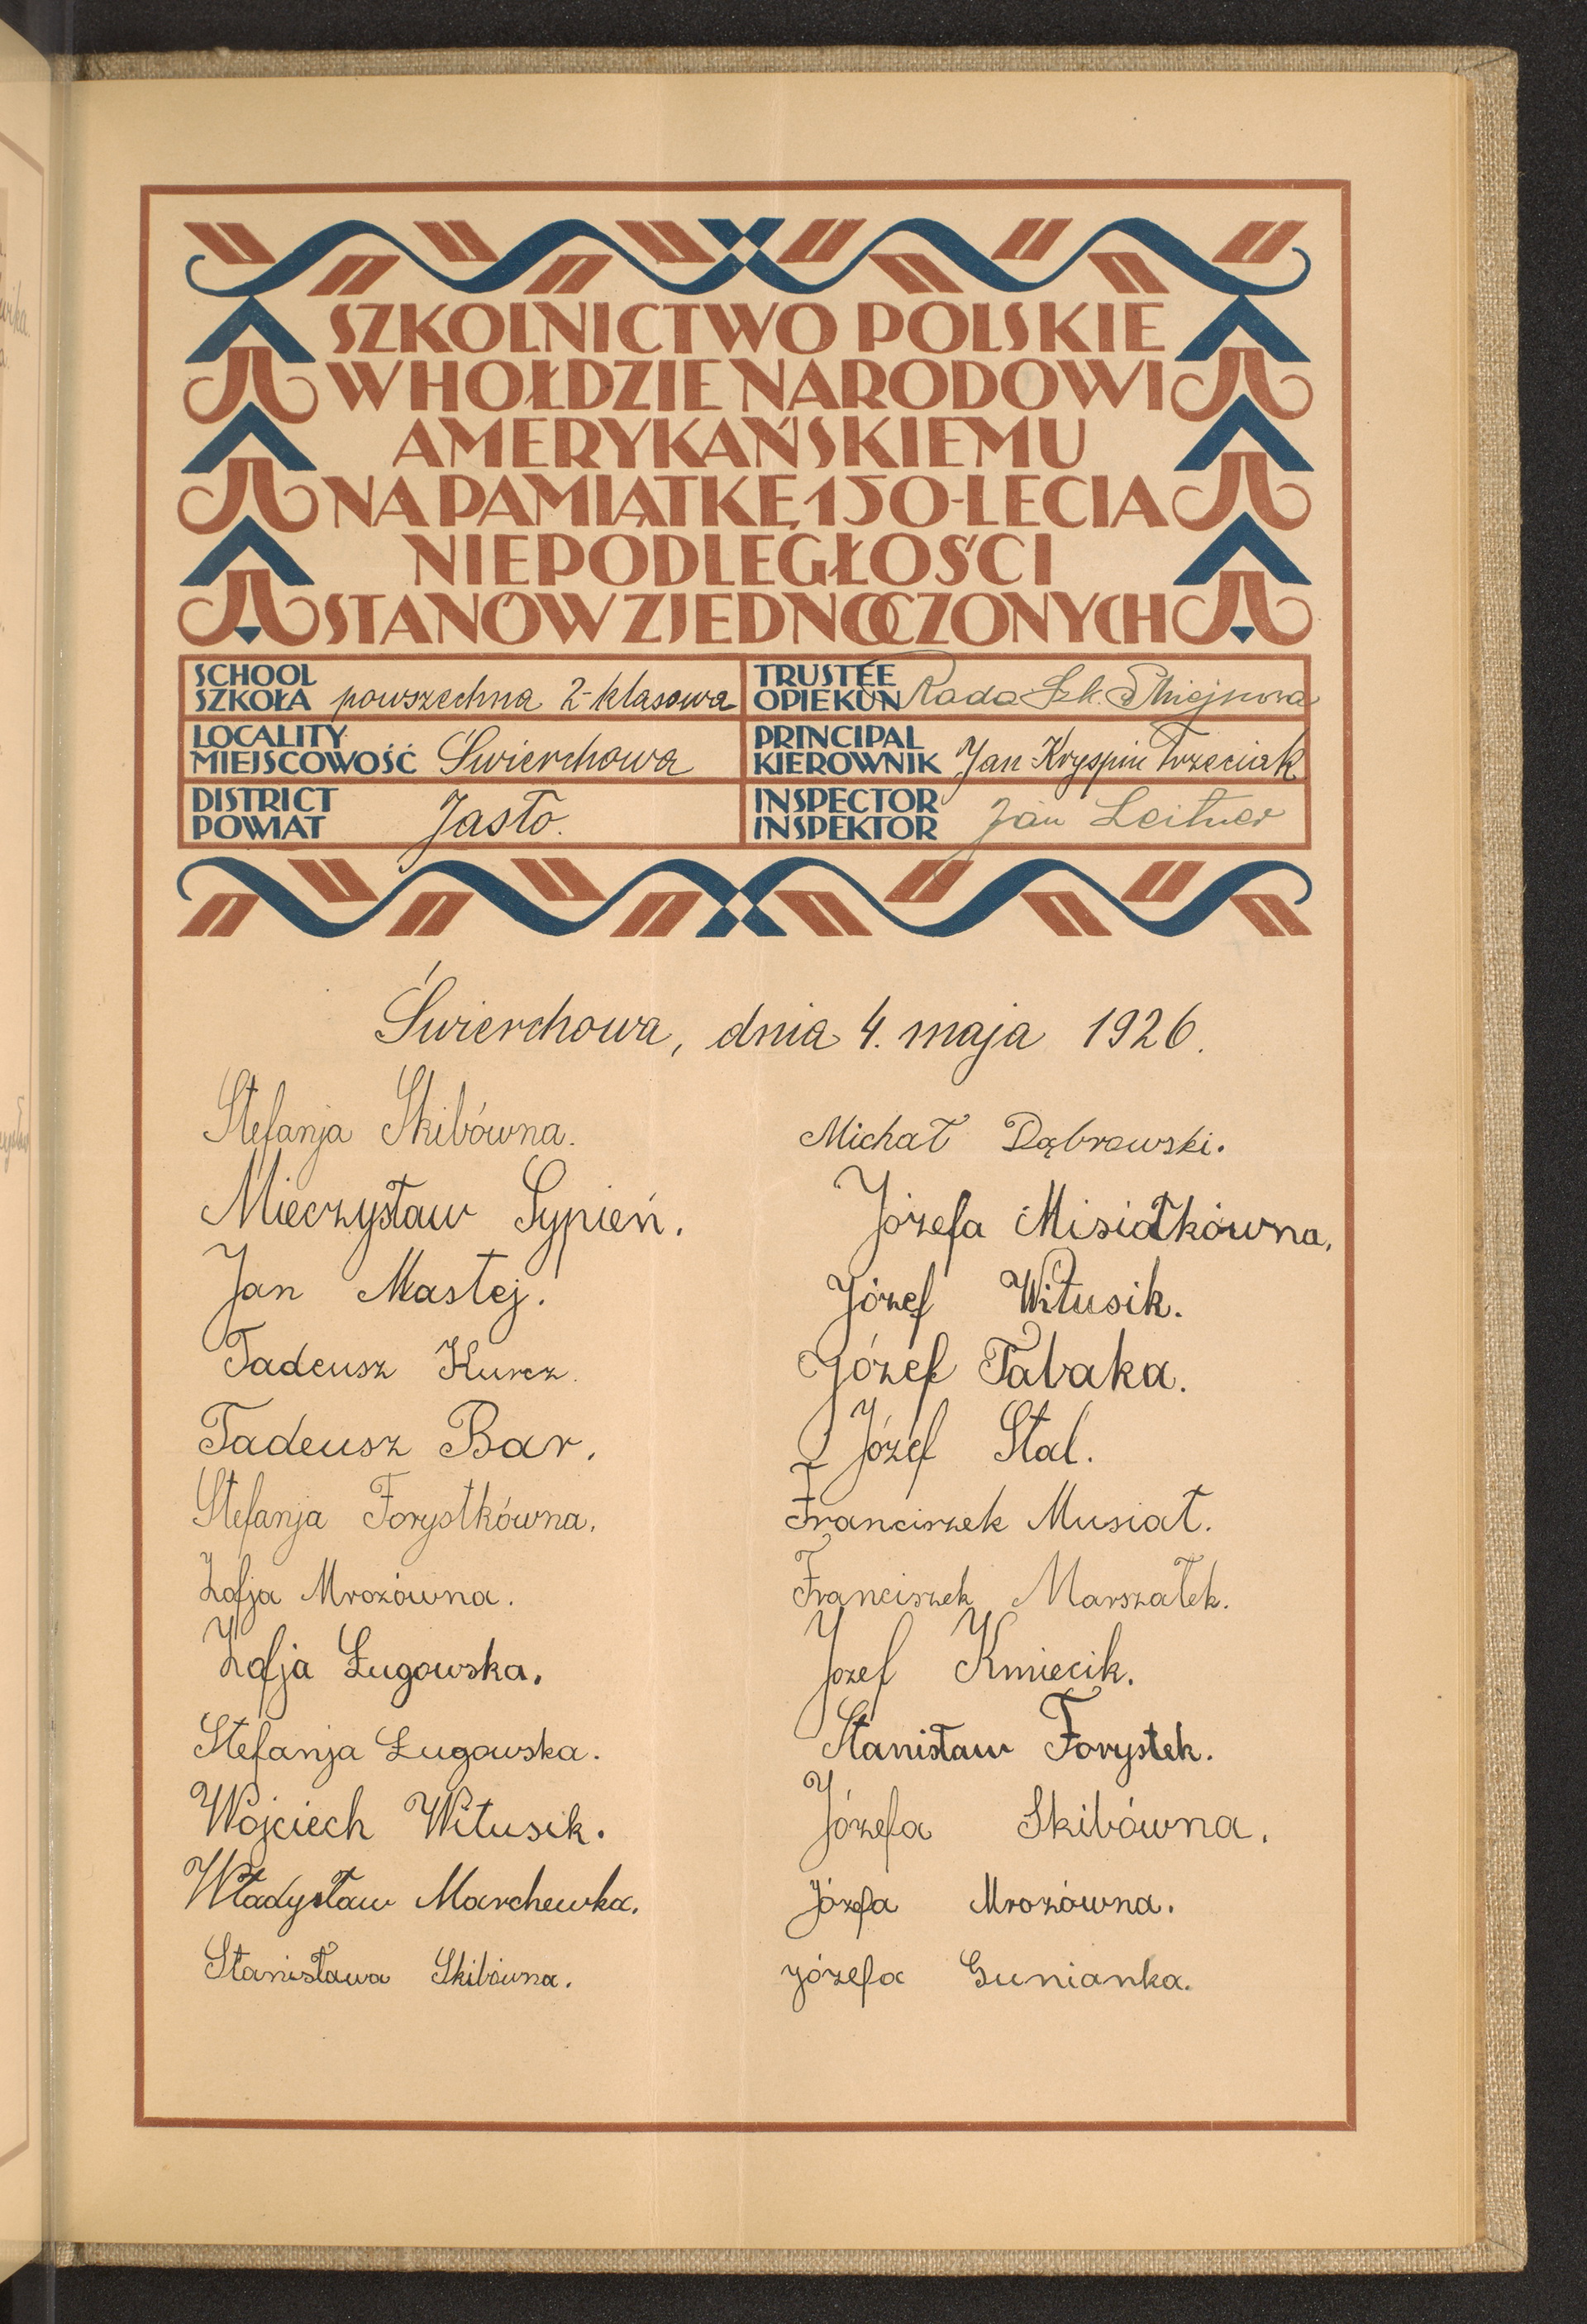 SZKOLNICTWO POLSKIE
W HOŁDZIE NARODOWI
AMERYKAŃSKIEMU
NA PAMIĄTKĘ 150-LECIA
NIEPODLEGŁOŚCI
STANÓW ZJEDNOCZONYCH
SCHOOL
SZKOŁA powszechna 2-klasowa
TRUSTEE
OPIEKUN Rada Szk. Miejscowa
LOCALITY
MIEJSCOWOŚĆ Świerchowa
PRINCIPAL
KIEROWNIK Jan Kryspin Trzeciak
DISTRICT
POWIAT Jasło.
INSPECTOR
INSPEKTOR Jan Leitner
Świerchowa, dnia 4. maja 1926.
Stefanja Skibówna.
Mieczysław Sypień.
Jan Mastej.
Tadeusz Kurcz.
Tadeusz Bar.
Stefanja Forystkówna.
Zofja Mrozówna.
Zofja Ługowska.
Stefanja Ługowska.
Wojciech Witusik.
Władysław Marchewka.
Stanisława Skibówna.
Michał Dąbrowski.
Józefa Misiołkówna.
Józef Witusik.
Józef Tabaka.
Józef Stal.
Franciszek Musiał.
Franciszek Marszałek.
Józef Kmiecik.
Stanisław Forystek.
Józefa Skibówna.
Józefa Mrozówna.
Józefa Gunianka.